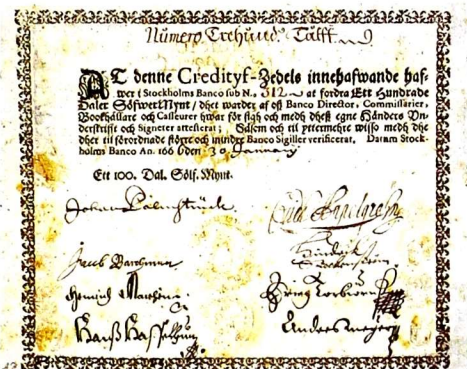 Numero Trehundr Tålff
AT denne Credityf-Zedels innehafwande haf-
wer i Stockholms Banco sub N. 312 at fordra Ett Hundrade
Daler Sölfwer Mynt / dhet warder af oß Banco Director, Commissarier,
Bookhållare och Casseurer hwar för sigh och medh dheß egne Händers Un-
derskrifft och Signeter attesterat; Såsom och til yttermehre wisso medh dhe
dher til förordnade större och mindre Banco Sigiller verificerat. Datum Stock-
holms Banco An. 1666 den 30 January
Ett 100. Dal. Sölf. Mynt.
Johan Palmstruck
Jacob
Hinrich
Hanß
Anders